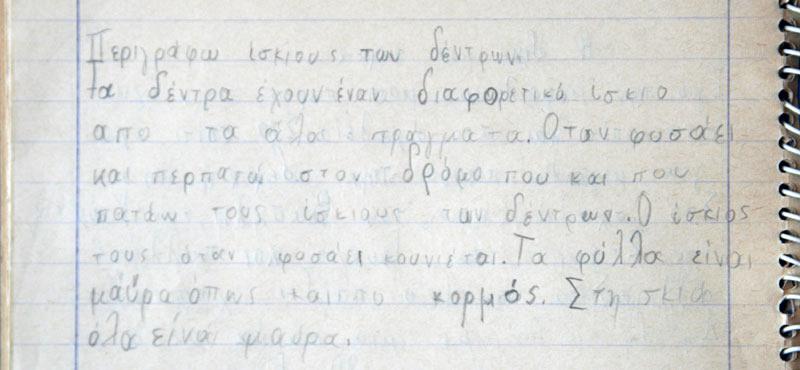 Περιγράφω ίσκιους των δέντρων
Τα δέντρα έχουν έναν διαφορετικό ίσκιο
απο τα άλα πράγματα. Όταν φυσάει
και περπατώ στον δρόμο που και που
πατάω τους ίσκιους των δέντρων. Ο ίσκιος
τους όταν φυσάει κουνιέται. Τα φύλλα είναι
μαύρα όπως και ο κορμός. Στη σκιά
όλα είναι μαύρα.